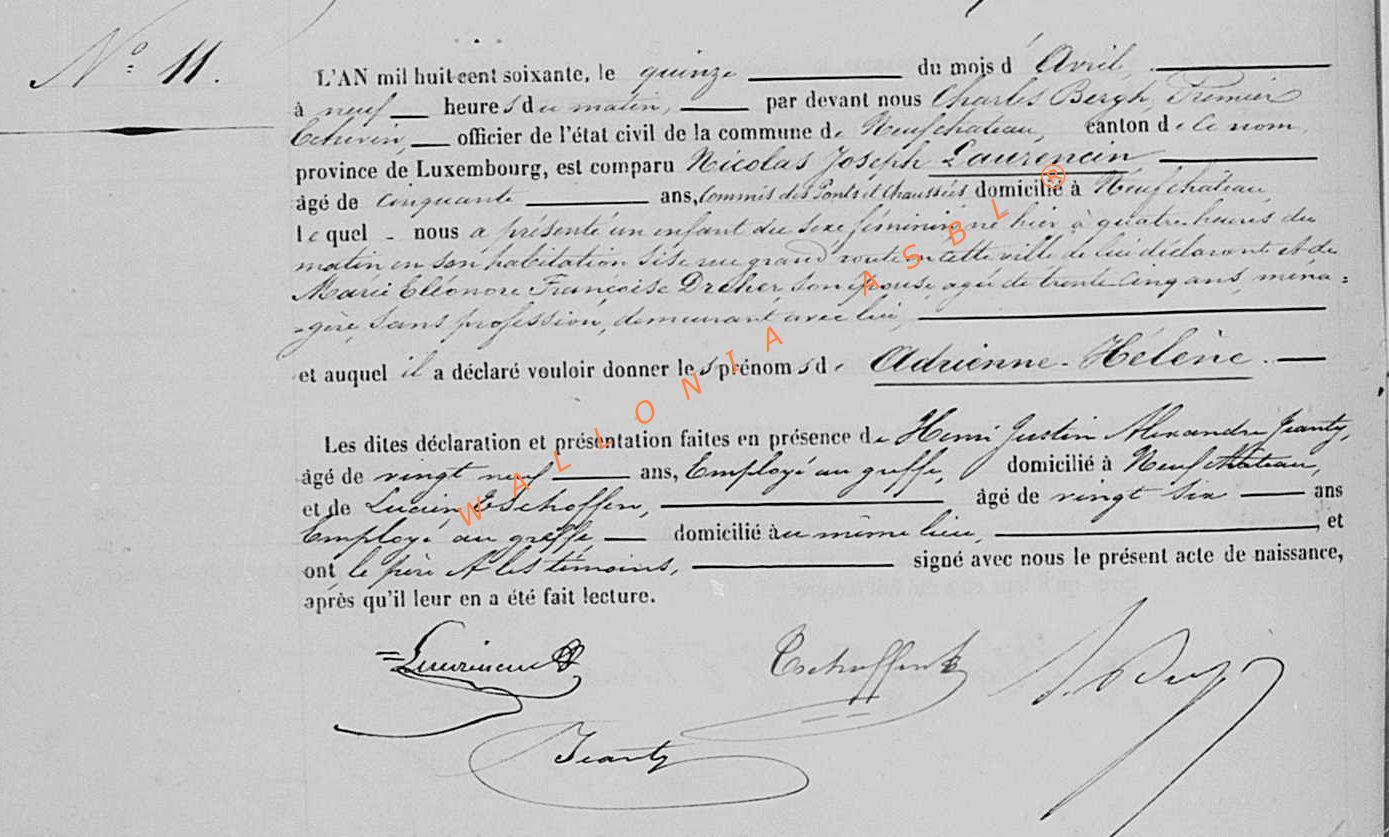 N° 11.
L'AN mil huit cent soixante, le quinze du mois d' Avril,
à neuf heures du matin, par devant nous Charles Bergh, Premier
Echevin, officier de l'état civil de la commune de Neufchateau, canton de ce nom,
province de Luxembourg, est comparu Nicolas Joseph Laurencin
âgé de cinquante ans, Commis des Ponts et Chaussées domicilié à Neufchateau,
lequel nous a présenté un enfant du sexe féminin né hier à quatre heures du
matin en son habitation sise rue grand'route en cette ville de lui déclarant et de
Marie Eléonore Françoise Dreher, son épouse, agée de trente-cinq ans, ména=
-gère, sans profession, demeurant avec lui,
et auquel il a déclaré vouloir donner les prénoms de Adrienne-Hélène.
Les dites déclaration et présentation faites en présence de Henri Justin Alexandre Jeanty,
âgé de vingt neuf ans, Employé au greffe, domicilié à Neufchateau,
et de Lucien Tschoffen, âgé de vingt six ans
Employé au greffe domicilié au même lieu, et
ont, le père et les témoins, signé avec nous le présent acte de naissance,
après qu'il leur en a été fait lecture.
Laurencin Tschoffen
Jeanty
WALLONIA ASBL ®